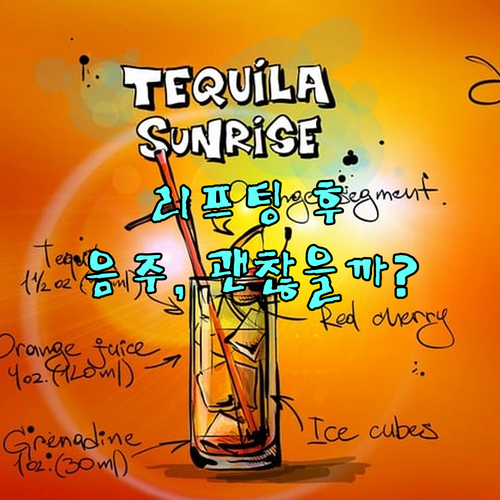 TEQUILA
SUNRISE
segment.
리프팅 후
음주, 괜찮을까?
1½ oz
Red cherry
Orange juice
4oz. (120ml)
Ice cubes
Grenadine
1oz. (30ml)